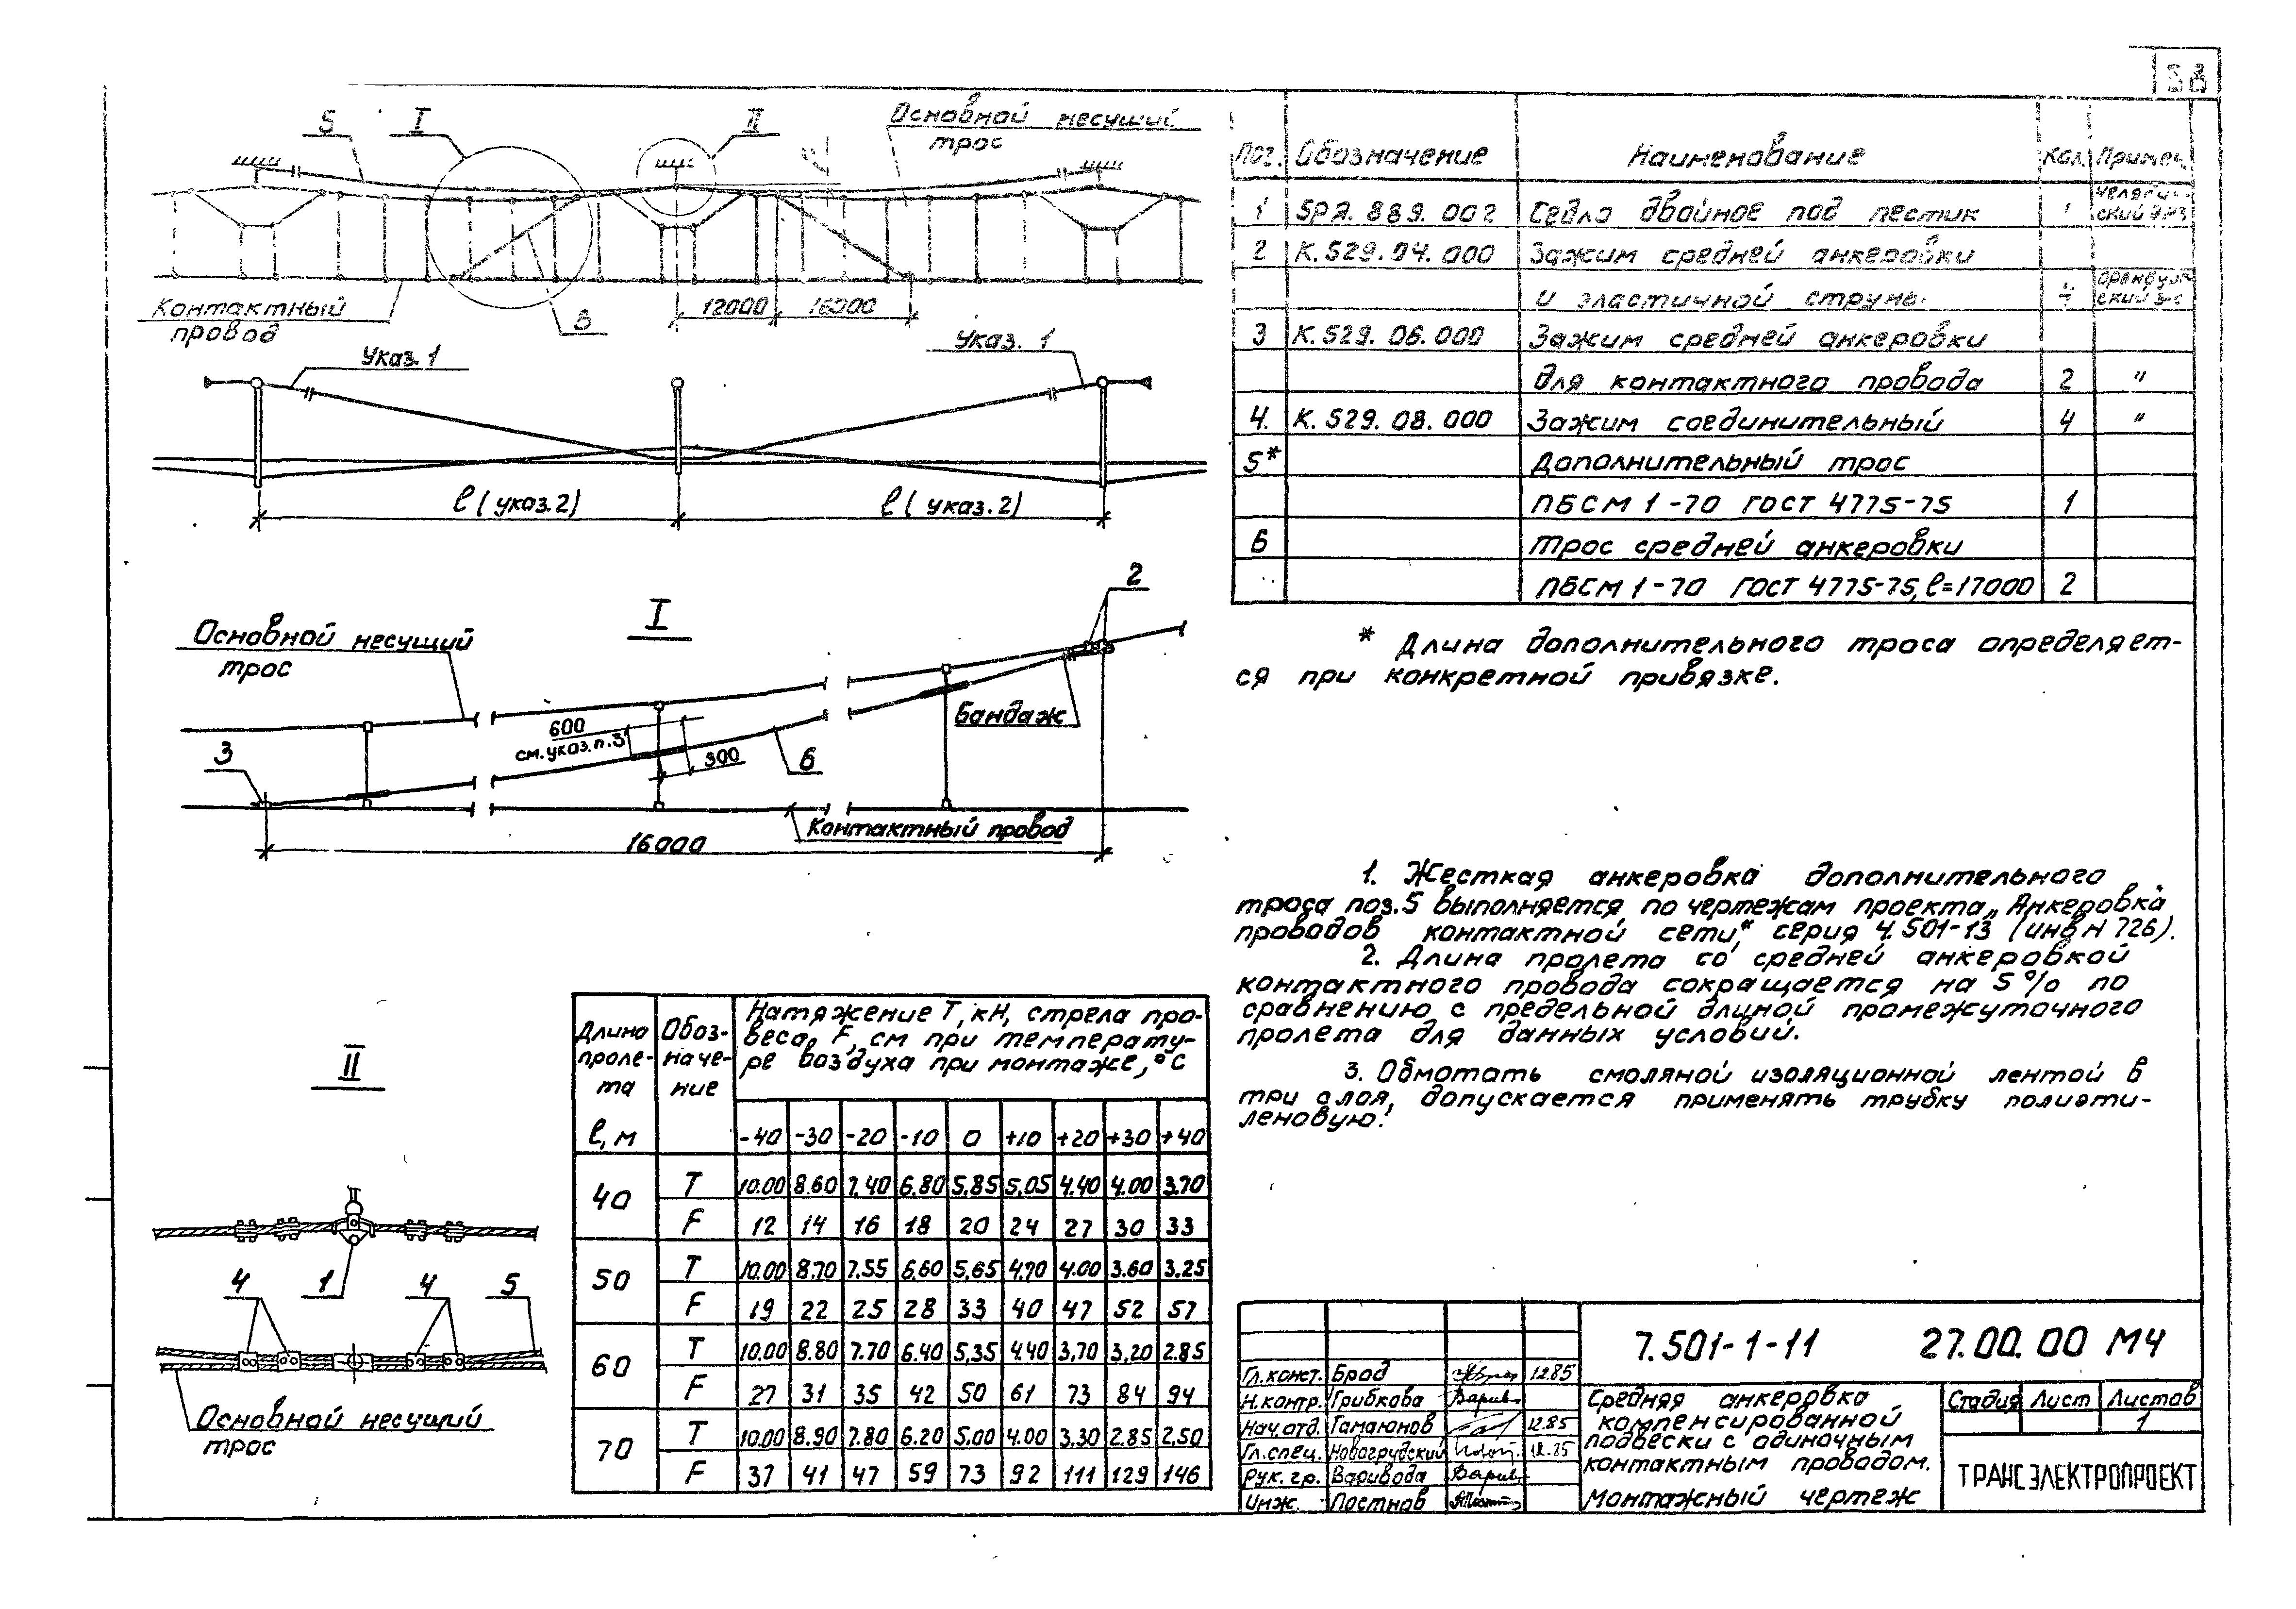 38
5
I
II
Основной несущий
трос
Контактный
провод
12000
16000
Указ. 1
Указ. 1
ℓ (указ. 2)
ℓ (указ. 2)
I
2
Основной несущий
трос
600
см. указ. п. 3
300
6
Бандаж
3
Контактный провод
16000
II
4
1
4
5
Основной несущий
трос
Длина проле-та ℓ, м
Обоз-наче-ние
Натяжение Т, кН, стрела про-
веса, F, см при температу-
ре воздуха при монтаже, °С
-40 -30 -20 -10 0 +10 +20 +30 +40
40
Т 10.00 8.60 7.40 6.80 5.85 5.05 4.40 4.00 3.70
F 12 14 16 18 20 24 27 30 33
50
Т 10.00 8.70 7.55 6.60 5.65 4.70 4.00 3.60 3.25
F 19 22 25 28 33 40 47 52 57
60
Т 10.00 8.80 7.70 6.40 5.35 4.40 3.70 3.20 2.85
F 27 31 35 42 50 61 73 84 94
70
Т 10.00 8.90 7.80 6.20 5.00 4.00 3.30 2.85 2.50
F 37 41 47 59 73 92 111 129 146
Поз. Обозначение Наименование Кол. Примеч.
1 5РЯ. 889. 002 Седло двойное под пестик 1
2 К. 529. 04. 000 Зажим средней анкеровки
и эластичной струны 4
3 К. 529. 06. 000 Зажим средней анкеровки
для контактного провода 2 "
4. К. 529. 08. 000 Зажим соединительный 4 "
5* Дополнительный трос
ПБСМ 1-70 ГОСТ 4775-75 1
6 Трос средней анкеровки
ПБСМ 1-70 ГОСТ 4775-75, ℓ=17000 2
* Длина дополнительного троса определяет-
ся при конкретной привязке.
1. Жесткая анкеровка дополнительного
троса поз. 5 выполняется по чертежам проекта „Анкеровка
проводов контактной сети," серия 4.501-13 (инв н 726).
2. Длина пролета со средней анкеровкой
контактного провода сокращается на 5% по
сравнению с предельной длиной промежуточного
пролета для данных условий.
3. Обмотать смоляной изоляционной лентой в
три слоя, допускается применять трубку полиэти-
леновую.
7.501-1-11 27.00.00 МЧ
Гл. конст. Брод 12.85
Н. контр. Грибкова
Нач. отд. Гамаюнов 12.85
Гл. спец. Новогрудский 12.85
Рук. гр. Варивода
Инж. Постнов
Средняя анкеровка
компенсированной
подвески с одиночным
контактным проводом.
Монтажный чертеж
Стадия Лист Листов
1
ТРАНСЭЛЕКТРОПРОЕКТ